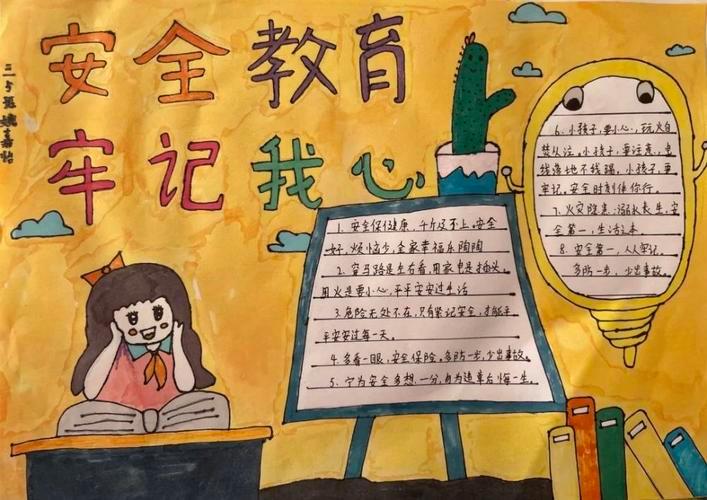 安全教育
牢记我心
嘉怡
1. 安全保健康,千斤及不上。安全
好,烦恼少,全家幸福乐陶陶
2. 穿马路是左右看,用家电是插头。
用火是要小心,平平安安过生活
3. 危险无处不在,只有紧记安全,才能平
平安安过每一天。
4. 多看一眼,安全保险。多防一步,少出事故。
5. 宁为安全多想一分,勿为违章后悔一生。
6. 小孩子,要小心,玩火自
焚,小孩子,要注意,电
线落地不,小孩子,要
牢记,安全时刻伴你行。
7. 火灾隐患:安
全第一,生活之本
8. 安全第一,人人牢记
多防一步,少出事故。